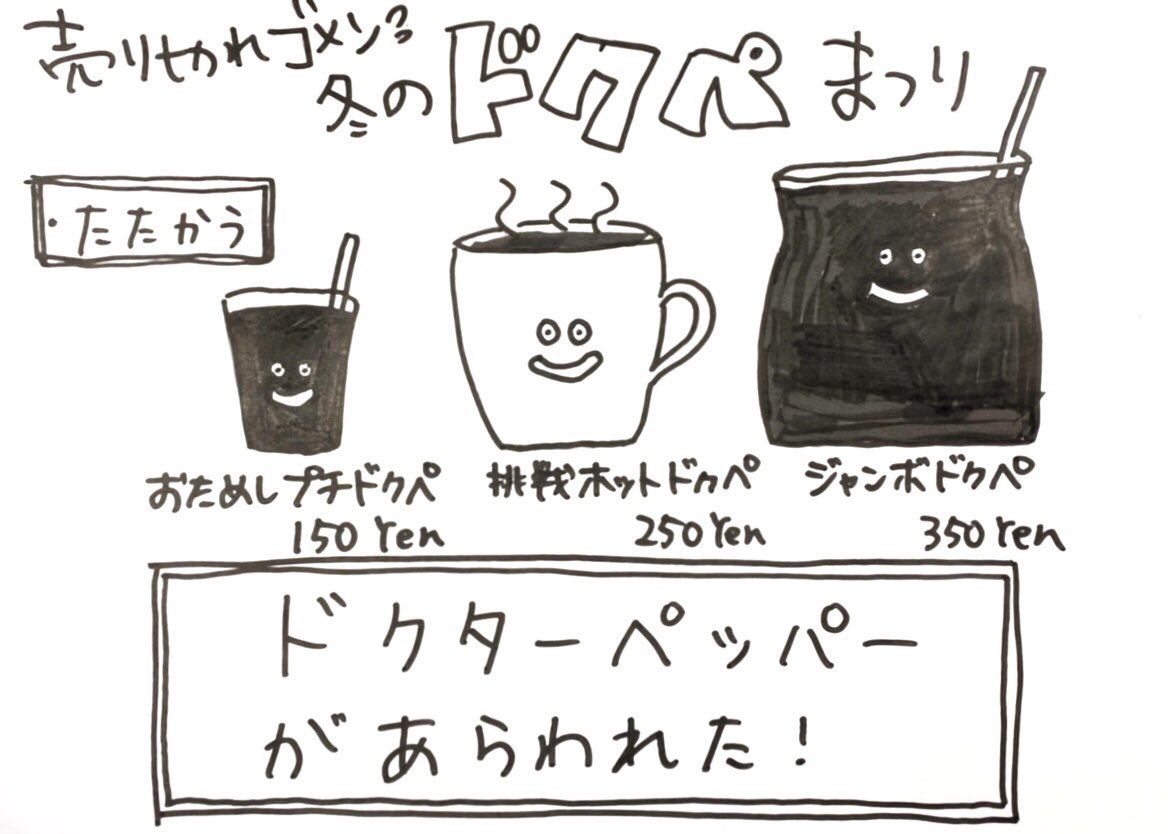 売り切れゴメン?
冬のドクペまつり
・たたかう
おためしプチドクペ
150 Yen
挑戦ホットドクペ
250 Yen
ジャンボドクペ
350 Yen
ドクターペッパー
があらわれた!